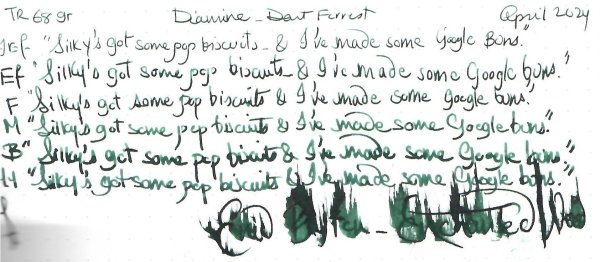 TR 68 gr Diamine - Dart Forrest April 2024
Jr Ef "Silky's got some pop biscuits - & I've made some Google Buns."
Ef "Silky's got some pop biscuits & I've made some Google buns."
F "Silky's got some pop biscuits & I've made some google buns."
M "Silky's got some pop biscuits & I've made some Google buns."
B "Silky's got some pop biscuits & I've made some Google buns."
"Silky's got some pop biscuits & I've made some Google buns."
Enid Blyton - Enchanted Wood